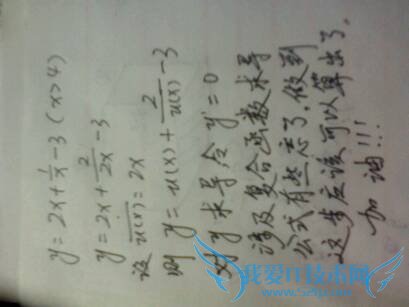 y=2x+1/x-3(x>4)
y=2x+2/2x-3
设 u(x)=2x
则 y=u(x)+2/u(x)-3
对y求导令y'=0
涉及复合函数求导
公式有些忘了,做到
这步应该可以算出了,
加油!!!
我爱IT技术网
www.52ij.com